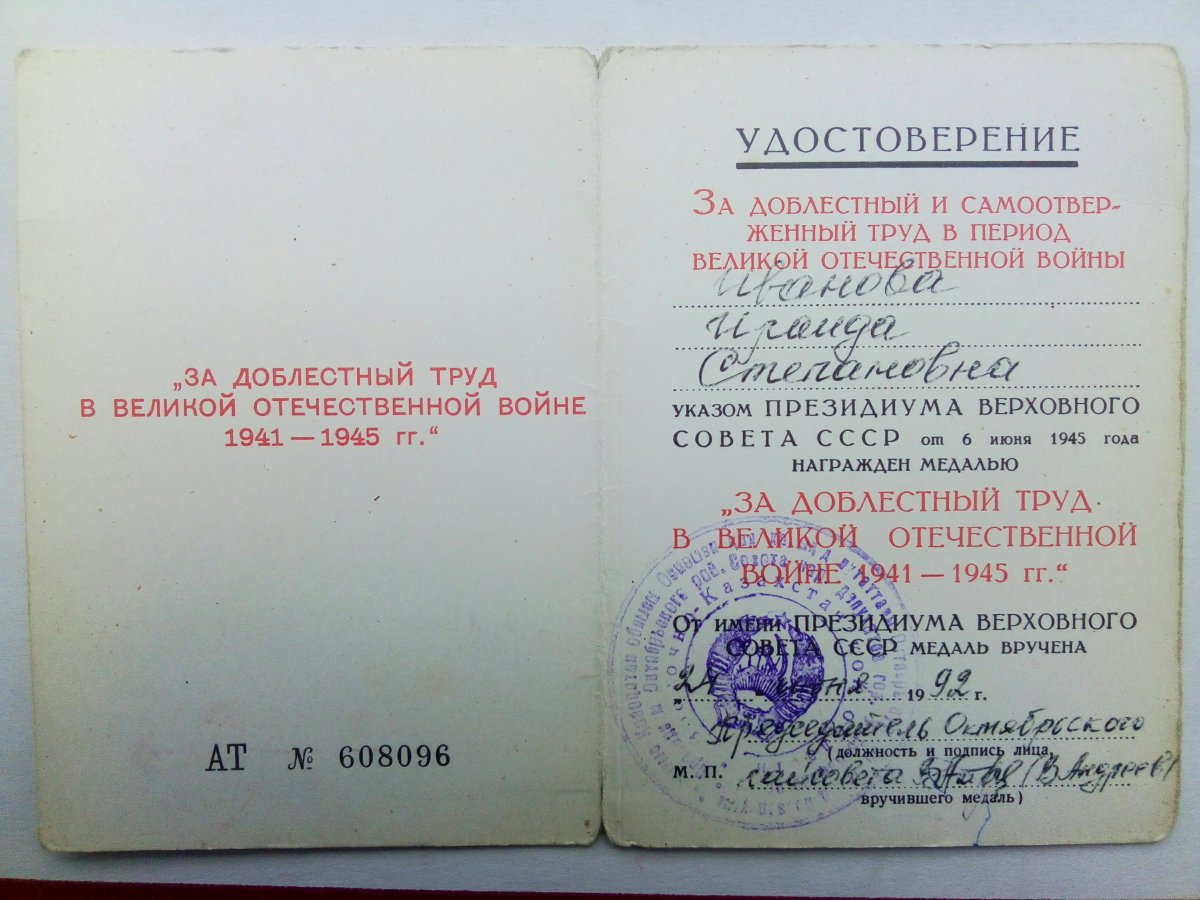 „ЗА ДОБЛЕСТНЫЙ ТРУД
В ВЕЛИКОЙ ОТЕЧЕСТВЕННОЙ ВОЙНЕ
1941 — 1945 гг.“
АТ № 608096
УДОСТОВЕРЕНИЕ
ЗА ДОБЛЕСТНЫЙ И САМООТВЕР-
ЖЕННЫЙ ТРУД В ПЕРИОД
ВЕЛИКОЙ ОТЕЧЕСТВЕННОЙ ВОЙНЫ
Иванова
Ираида
Степановна
УКАЗОМ ПРЕЗИДИУМА ВЕРХОВНОГО
СОВЕТА СССР от 6 июня 1945 года
НАГРАЖДЕН МЕДАЛЬЮ
„ЗА ДОБЛЕСТНЫЙ ТРУД
В ВЕЛИКОЙ ОТЕЧЕСТВЕННОЙ
ВОЙНЕ 1941 — 1945 гг.“
ОТ ИМЕНИ ПРЕЗИДИУМА ВЕРХОВНОГО
СОВЕТА СССР МЕДАЛЬ ВРУЧЕНА
„24 июня 1992 г.
Председатель Октябрьского
(должность и подпись лица,
М. П. райсовета (В. Андреев)
вручившего медаль)